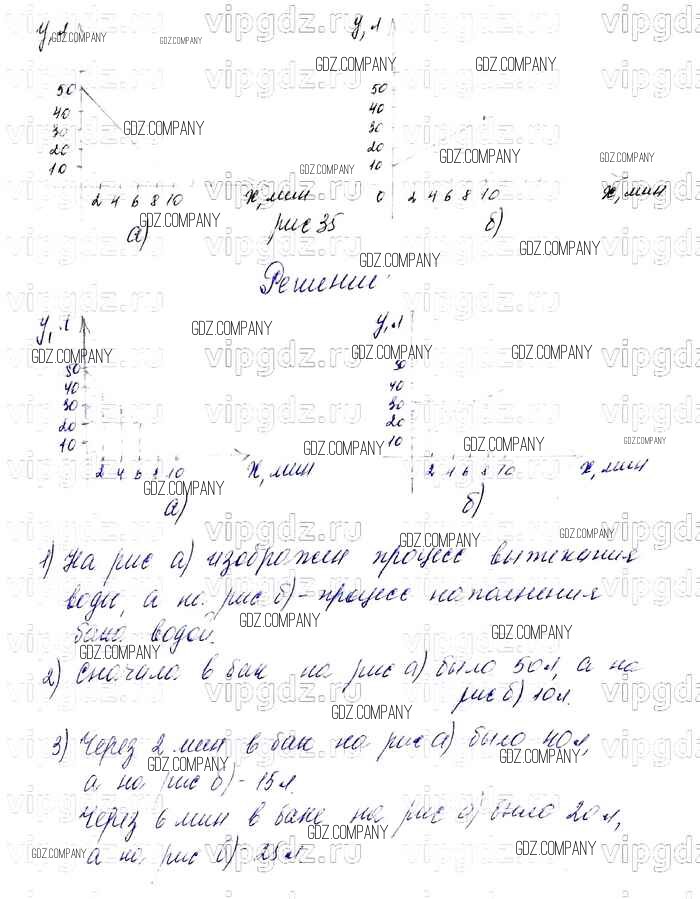 у, л
у, л
50
40
30
20
10
2 4 6 8 10
х, мин
а)
рис 35
50
40
30
20
10
0
2 4 6 8 10
х, мин
б)
Решение:
у, л
50
40
30
20
10
2 4 6 8 10
х, мин
а)
у, л
50
40
30
20
10
2 4 6 8 10
х, мин
б)
1) На рис а) изображен процесс вытекания
воды, а на рис б) - процесс наполнения
бака водой.
2) Сначала в бак на рис а) было 50 л, а на
рис б) 10 л.
3) Через 2 мин в бак на рис а) было 40 л,
а на рис б) - 15 л.
Через 6 мин в баке на рис а) было 20 л,
а на рис б) - 25 л.
GDZ.COMPANY
vipgdz.ru